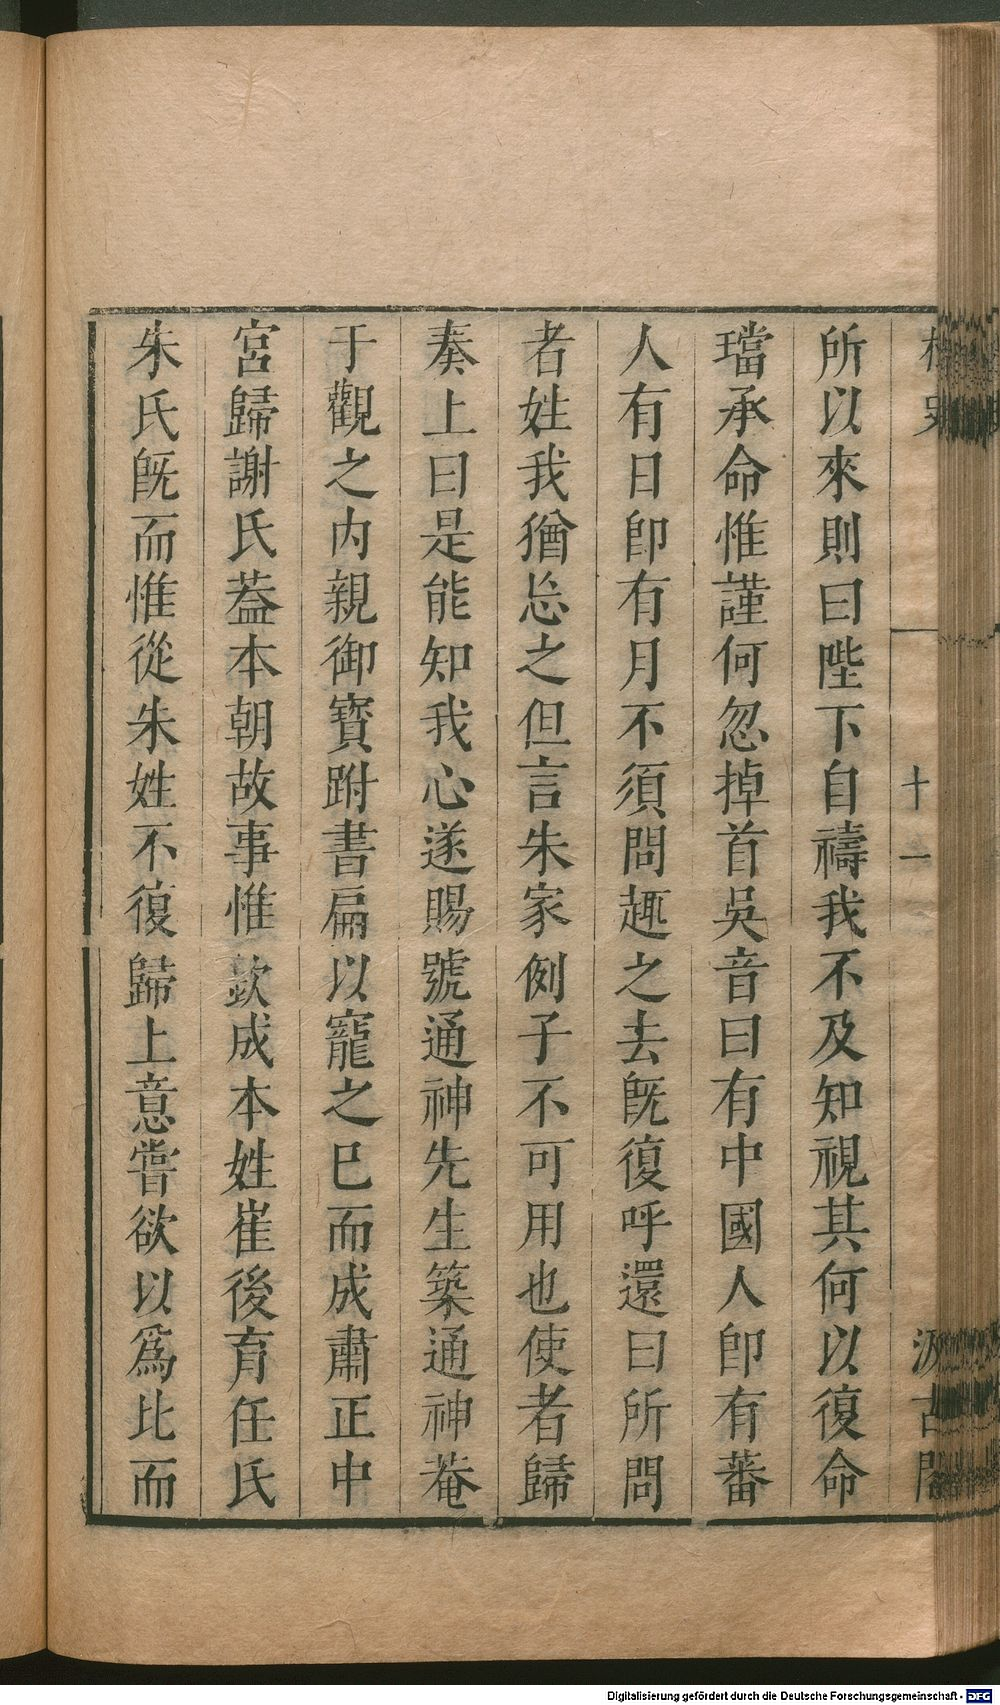 史
十一
汲古閣
所以來則曰陛下自禱我不及知視其何以復命
璫承命惟謹何忽掉首吳音曰有中國人卽有蕃
人有日卽有月不須問趣之去旣復呼還曰所問
者姓我猶忘之但言朱家例子不可用也使者歸
奏上曰是能知我心遂賜號通神先生築通神菴
于觀之内親御寶跗書扁以寵之已而成肅正中
宮歸謝氏葢本朝故事惟欽成本姓崔後育任氏
朱氏旣而惟從朱姓不復歸上意嘗欲以爲比而
Digitalisierung gefördert durch die Deutsche Forschungsgemeinschaft - DFG